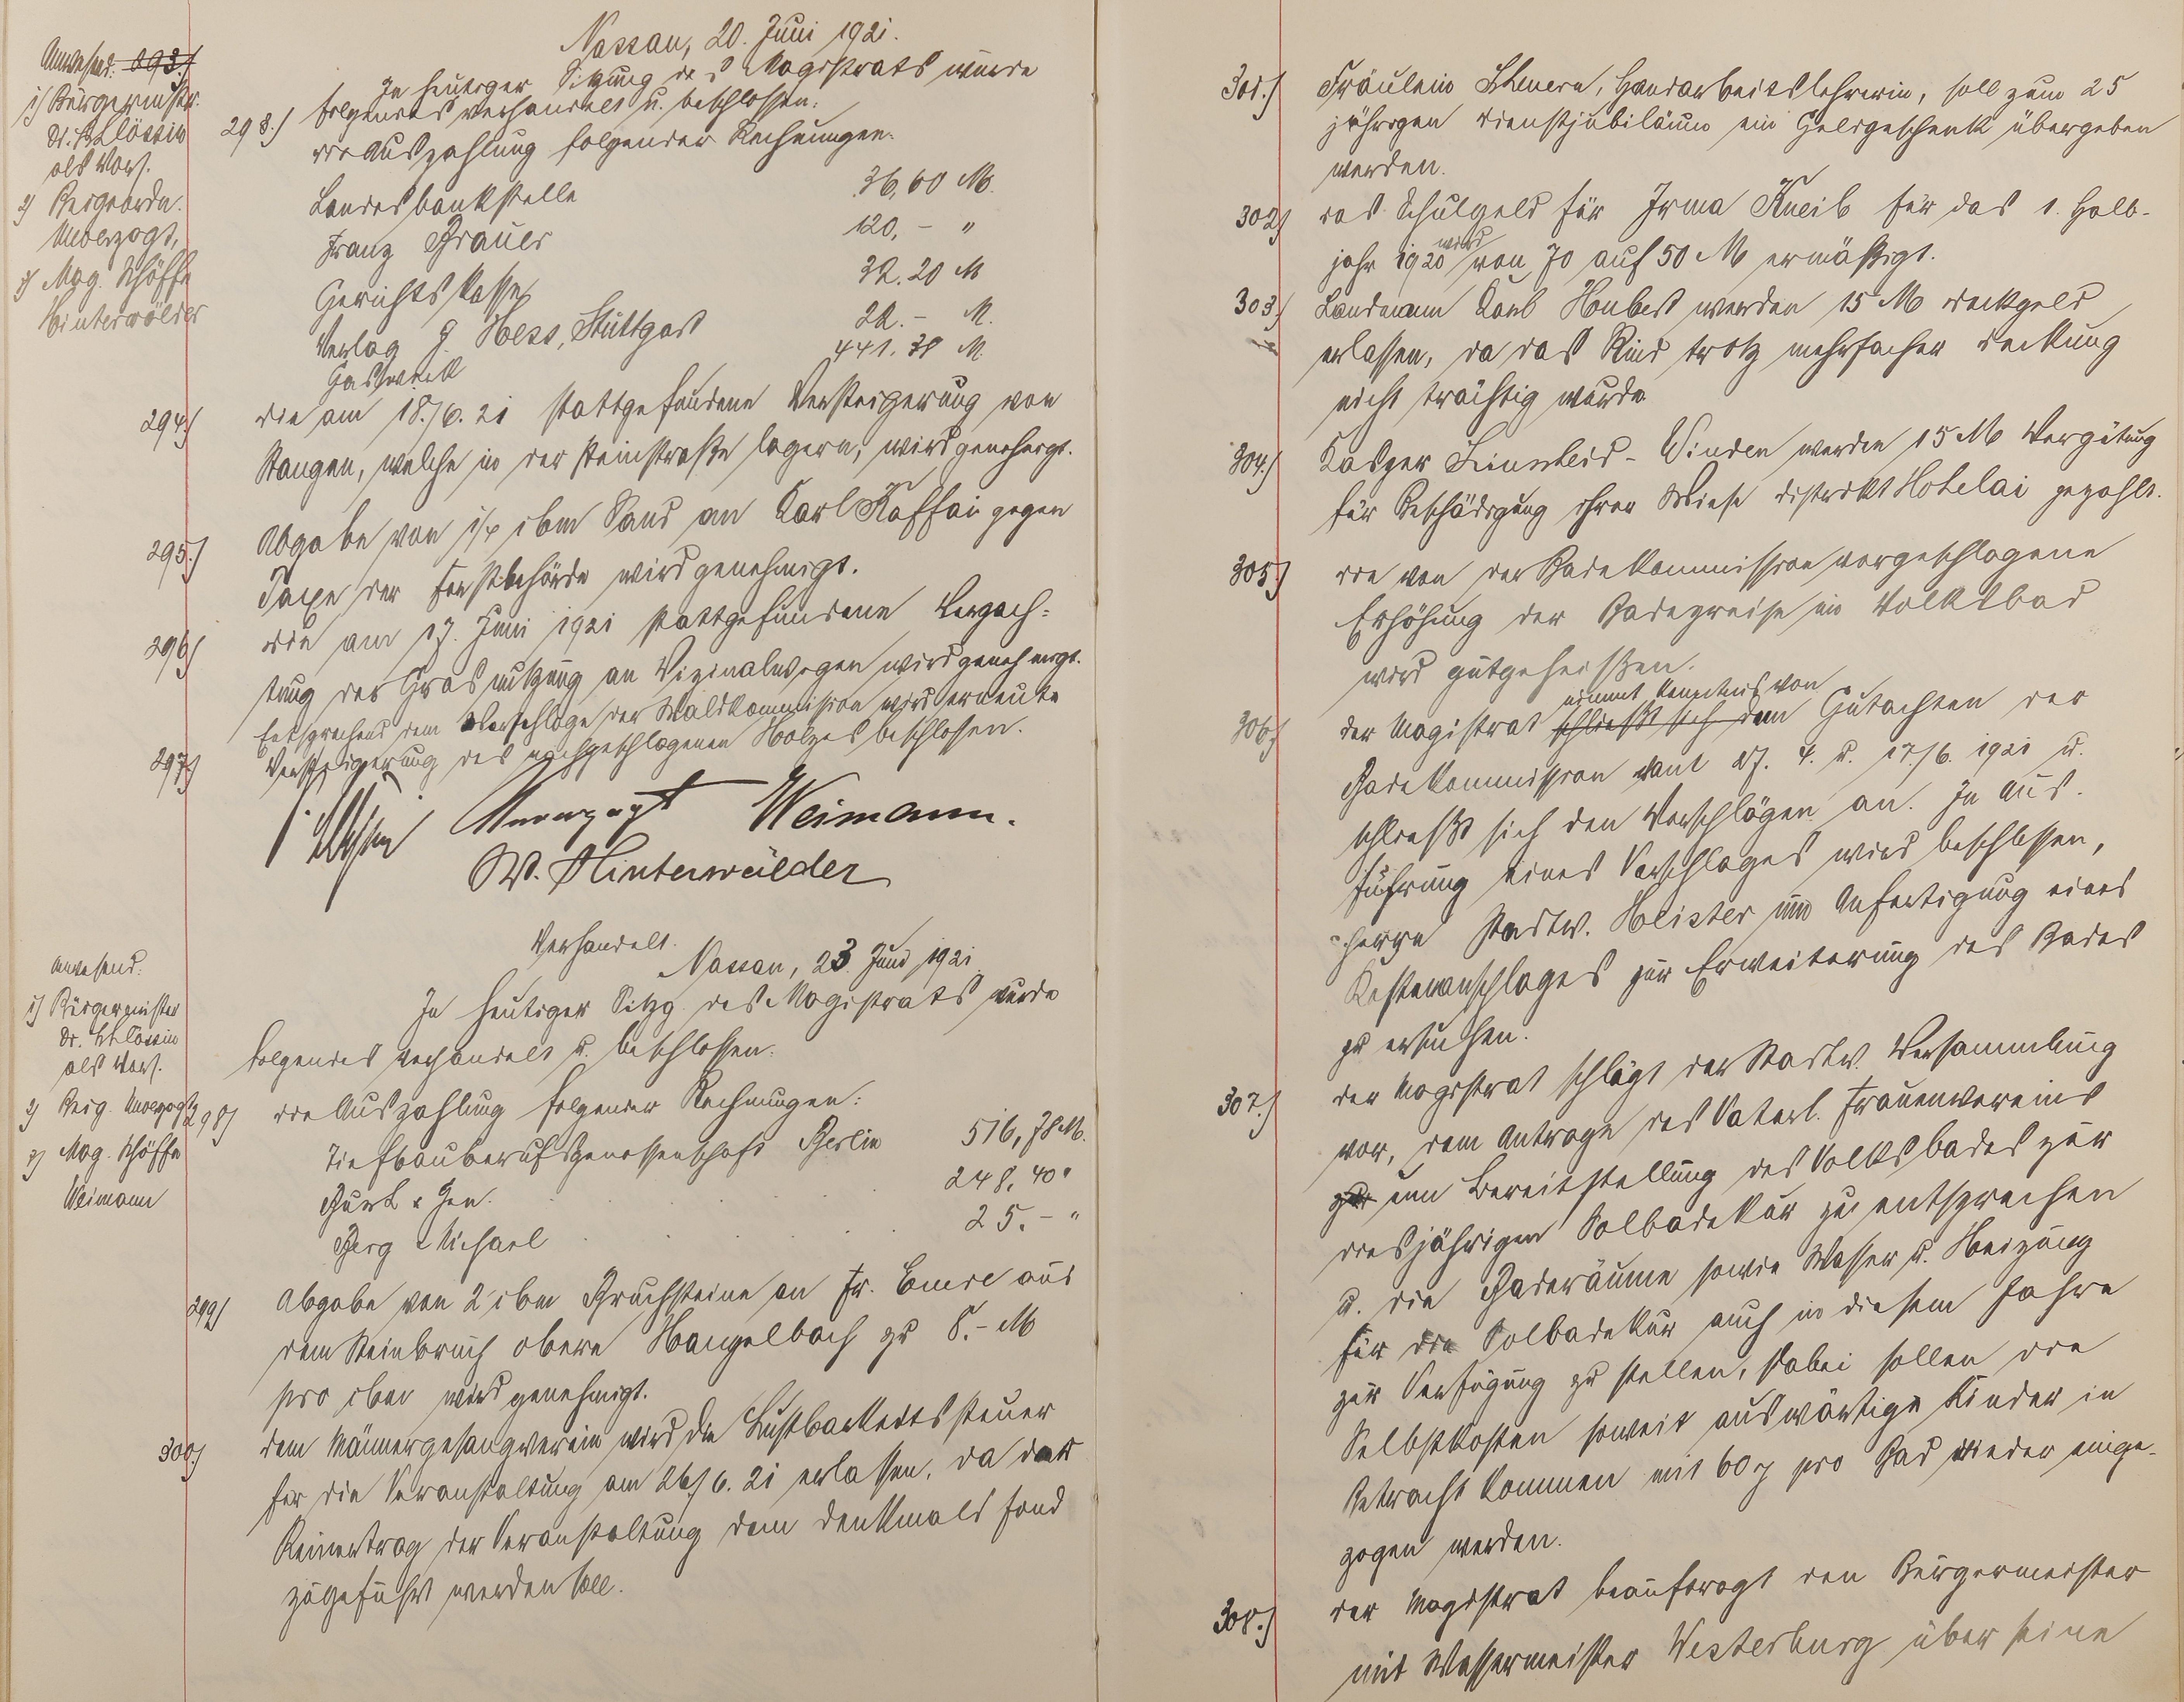 Nassau, 20. Juni 1921.
Anwesend: 293.)
1) Bürgermstr.
Dr. Schlössin
als Vors.
2) Beigeordn.
Unverzagt,
3) Mag. Schöffe
Hinterwälder
In heutiger Sitzung des Magistrats wurde
folgendes verhandelt u. beschlossen:
293.) die Auszahlung folgender Rechnungen:
Landesbankstelle 36,60 M.
Franz Brauer 120,– "
Gerichtskasse 32.20 M
Verlag J. Hess, Stuttgart 22.– M.
Gaswerk 441.38 M.
294.) die am 18./6. 21 stattgefundene Versteigerung von
Stangen, welche in der Steinstraße lagern, wird genehmigt.
295.) Abgabe von 1/4 cbm Sand an Karl Kaffai gegen
Taxe der Forstbehörde wird genehmigt.
296) die am 17. Juni 1921 stattgefundene Verpach-
tung der Grasnutzung an Vizinalwegen wird genehmigt.
297) Entsprechend dem Vorschlage der Waldkommission wird erneute
Versteigerung des nachgeschlagenen Holzes beschlossen.
Unverzagt Weimann.
W. Hinterwälder
Verhandelt.
Nassau, 23. Juni 1921
Anwesend:
1) Bürgermeister
Dr. Schlössin
als Vors.
2) Beig. Unverzagt
3) Mag. Schöffe
Weimann
In heutiger Sitzg. des Magistrats wurde
folgendes verhandelt u. beschlossen:
298) die Auszahlung folgender Rechnungen:
Tiefbauberufsgenossenschaft Berlin 516,78 M.
Burk & Gen. 248,40 "
Berg Michael 25.– "
299) Abgabe von 2 cbm Bruchsteine an Fr. Emde aus
dem Steinbruch obere Hangelbach zu 8.– M
pro cbm wird genehmigt.
300) dem Männergesangverein wird die Lustbarkeitssteuer
für die Veranstaltung am 26./6. 21 erlassen, da der
Reinertrag der Veranstaltung dem Denkmals fond
zugeführt werden soll.
301.) Fräulein, Handarbeitslehrerin, soll zum 25
jährigen Dienstjubiläum ein Geldgeschenk übergeben
werden.
302) das Schulgeld für Irma Kneib für das 1. Halb-
jahr 1920 wird von 70 auf 50 M ermäßigt.
303) Landmann Karl Haubert werden 15 M Deckgeld
erlassen, da das Rind trotz mehrfacher Deckung
nicht trächtig wurde
304.) Kasper Linscheid - Winden werden 15 M Vergütung
für Beschädigung ihrer Wiese Distrikt Hohelai gezahlt.
305.) die von der Badekommission vorgeschlagene
Erhöhung der Badepreise im Volksbad
wird gutgeheißen.
nimmt Kenntnis von
306) der Magistrat schließt sich dem Gutachten der
Badekommission vom 27. 4. u. 17./6. 1921 u.
schließt sich den Vorschlägen an. In Aus-
führung eines Vorschlages wird beschlossen,
Herrn Stadtv. Heister um Anfertigung eines
Kostenanschlages zur Erweiterung des Bades
zu ersuchen.
307.) der Magistrat schlägt der Stadtv. Versammlung
vor, dem Antrage des Vaterl. Frauenvereins
zur um Bereitstellung des Volksbades zur
diesjährigen Solbadekur zu entsprechen
u. die Baderäume sowie Wasser u. Heizung
für die Solbadekur auch in diesem Jahre
zur Verfügung zu stellen, dabei sollen die
Selbstkosten soweit auswärtige Kinder in
Betracht kommen mit 60 ₰ pro Bad wieder einge-
zogen werden.
308.) der Magistrat beauftragt den Bürgermeister
mit Wassermeister Westerburg über seine